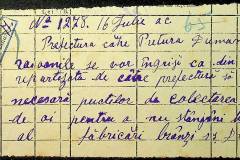 No 1278. 16 Iulie ac
65
Prefectura către Pretura Dumar
raioanele se vor îngriji ca din
repartizată de către prefectură să
necesară puctilor de colectarea
de oi pentru a nu stângéni b
al fabricări brânzi